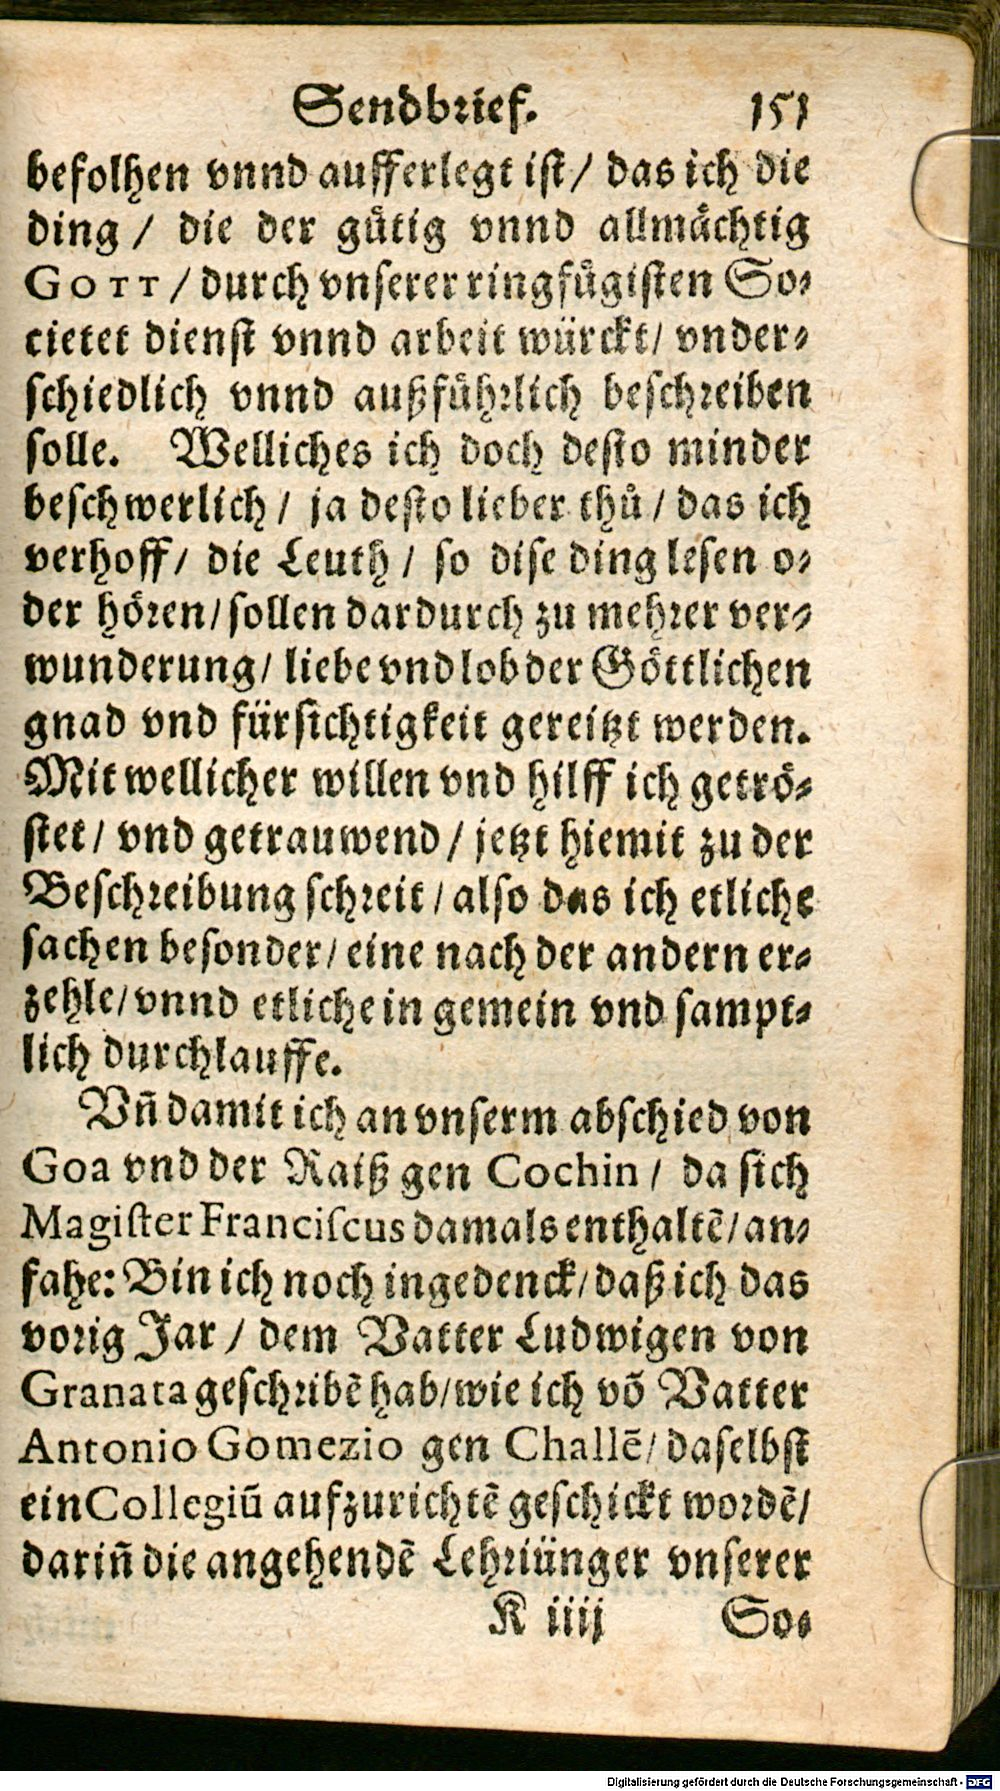 Sendbrief. 151
befolhen vnnd aufferlegt ist / das ich die
ding / die der gůtig vnnd allmächtig
GOTT / durch vnserer ringfůgisten So⸗
cietet dienst vnnd arbeit würckt / vnder⸗
schiedlich vnnd außfůhrlich beschreiben
solle. Welliches ich doch desto minder
beschwerlich / ja desto lieber thů / das ich
verhoff / die Leuth / so dise ding lesen o⸗
der hören / sollen dardurch zu mehrer ver⸗
wunderung / liebe vnd lob der Göttlichen
gnad vnd fürsichtigkeit gereitzt werden.
Mit wellicher willen vnd hilff ich getrö⸗
stet / vnd getrauwend / jetzt hiemit zu der
Beschreibung schreit / also das ich etliche
sachen besonder / eine nach der andern er⸗
zehle / vnnd etliche in gemein vnd sampt⸗
lich durchlauffe.
Vn̄ damit ich an vnserm abschied von
Goa vnd der Raiß gen Cochin / da sich
Magister Franciscus damals enthaltē / an⸗
fahe: Bin ich noch ingedenck / daß ich das
vorig Jar / dem Vatter Ludwigen von
Granata geschribē hab / wie ich vō Vatter
Antonio Gomezio gen Challē / daselbst
ein Collegiū aufzurichtē geschickt wordē /
darin̄ die angehendē Lehriünger vnserer
K iiij So⸗
Digitalisierung gefördert durch die Deutsche Forschungsgemeinschaft - DFG